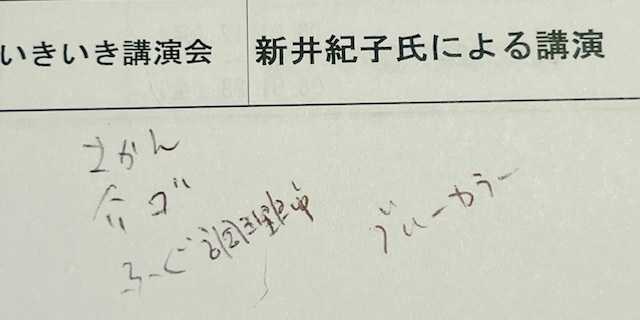 いきいき講演会
新井紀子氏による講演
さかん
介ゴ
ふぐ調理師
ブルーカラー